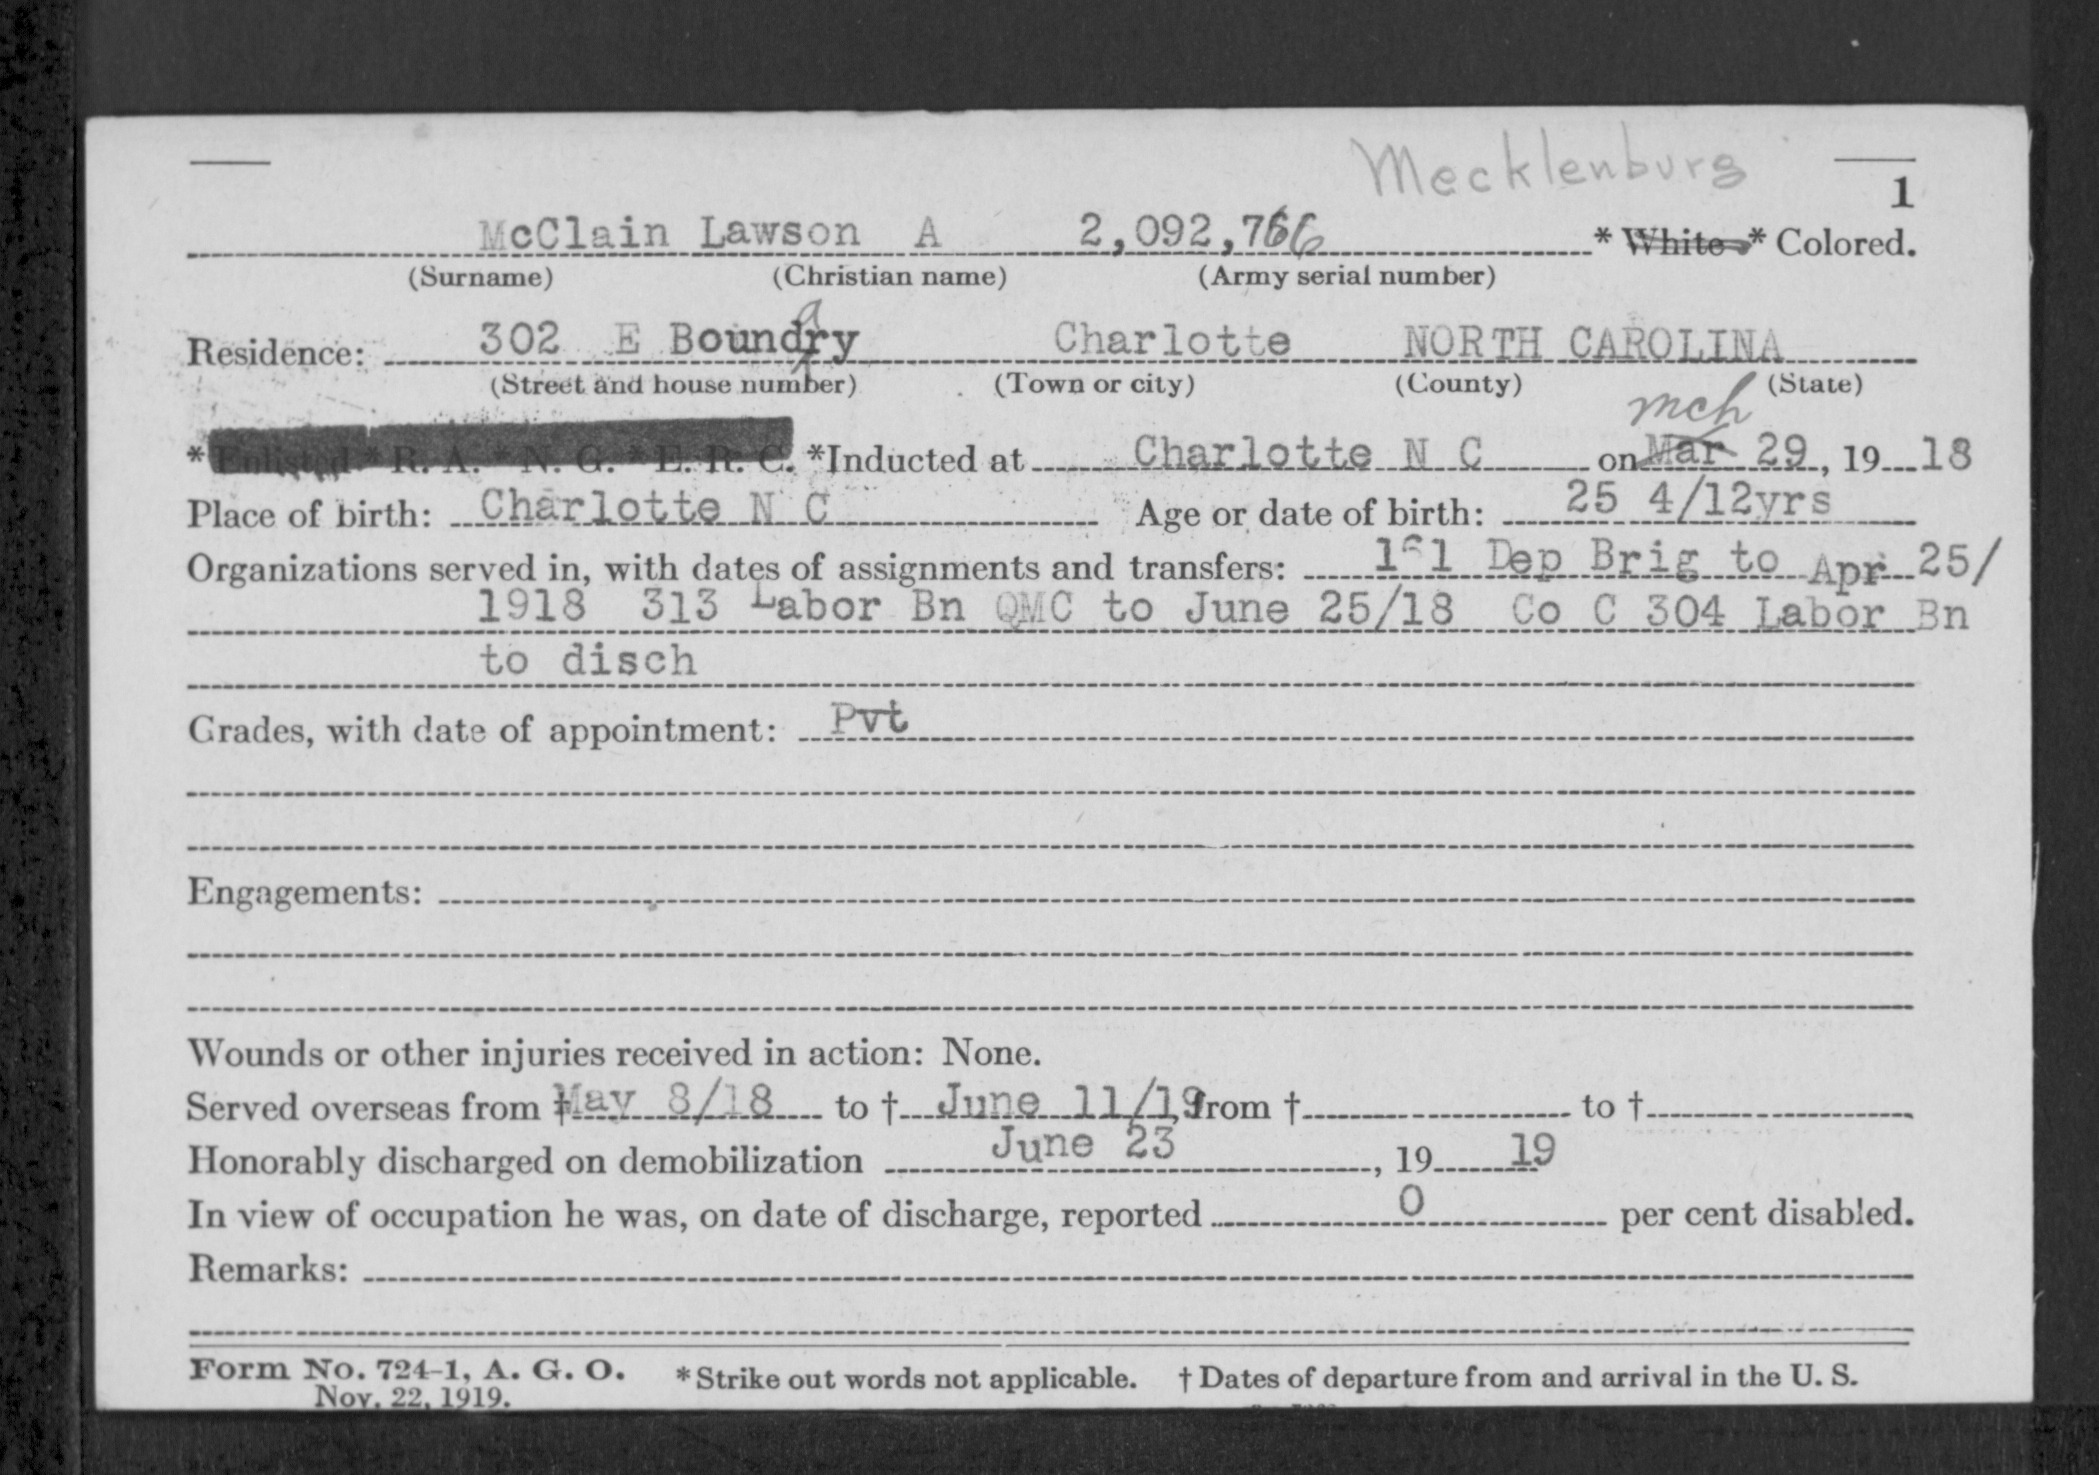 Mecklenburg
1
McClain Lawson A 2,092,766 * White * Colored.
(Surname) (Christian name) (Army serial number)
Residence: 302 E Boundary Charlotte NORTH CAROLINA
(Street and house number) (Town or city) (County) (State)
mch
*Enlisted * R. A. * N. G. * E. R. C. *Inducted at Charlotte N C on Mar 29, 1918
Place of birth: Charlotte N C Age or date of birth: 25 4/12yrs
Organizations served in, with dates of assignments and transfers: 161 Dep Brig to Apr 25/
1918 313 Labor Bn QMC to June 25/18 Co C 304 Labor Bn
to disch
Grades, with date of appointment: Pvt
Engagements:
Wounds or other injuries received in action: None.
Served overseas from † May 8/18 to † June 11/19, from † to †
Honorably discharged on demobilization June 23, 1919
In view of occupation he was, on date of discharge, reported 0 per cent disabled.
Remarks:
Form No. 724-1, A. G. O. *Strike out words not applicable. † Dates of departure from and arrival in the U. S.
Nov. 22, 1919.